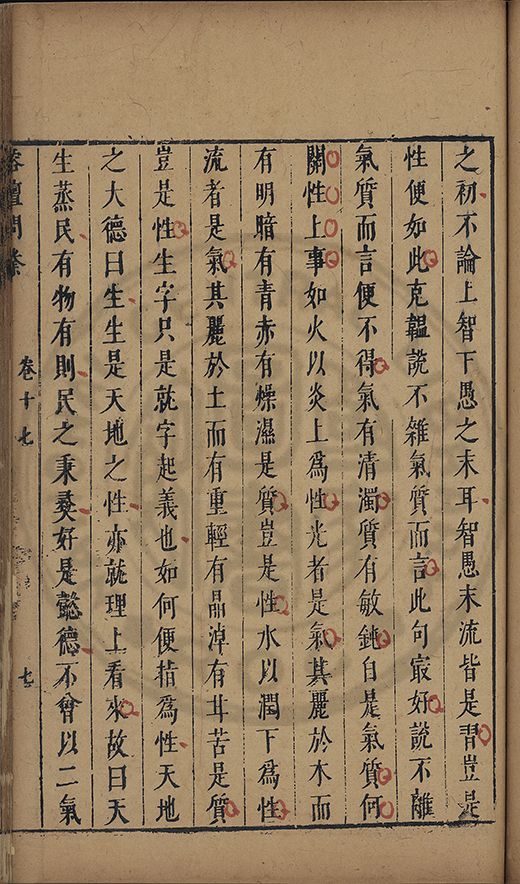 之初不論上智下愚之末耳智愚末流皆是習豈是
性便如此克韞說不雜氣質而言此句最好說不離
氣質而言便不得氣有清濁質有敏鈍自是氣質何
關性上事如火以炎上為性光者是氣其麗於木而
有明暗有青赤有燥濕是質豈是性水以潤下為性
流者是氣其麗於土而有重輕有晶淖有甘苦是質
豈是性生字只是就字起義也如何便指為性天地
之大德曰生生是天地之性亦就理上看來故曰天
生蒸民有物有則民之秉彝好是懿德不曾以二氣
榕壇問業
卷十七
七